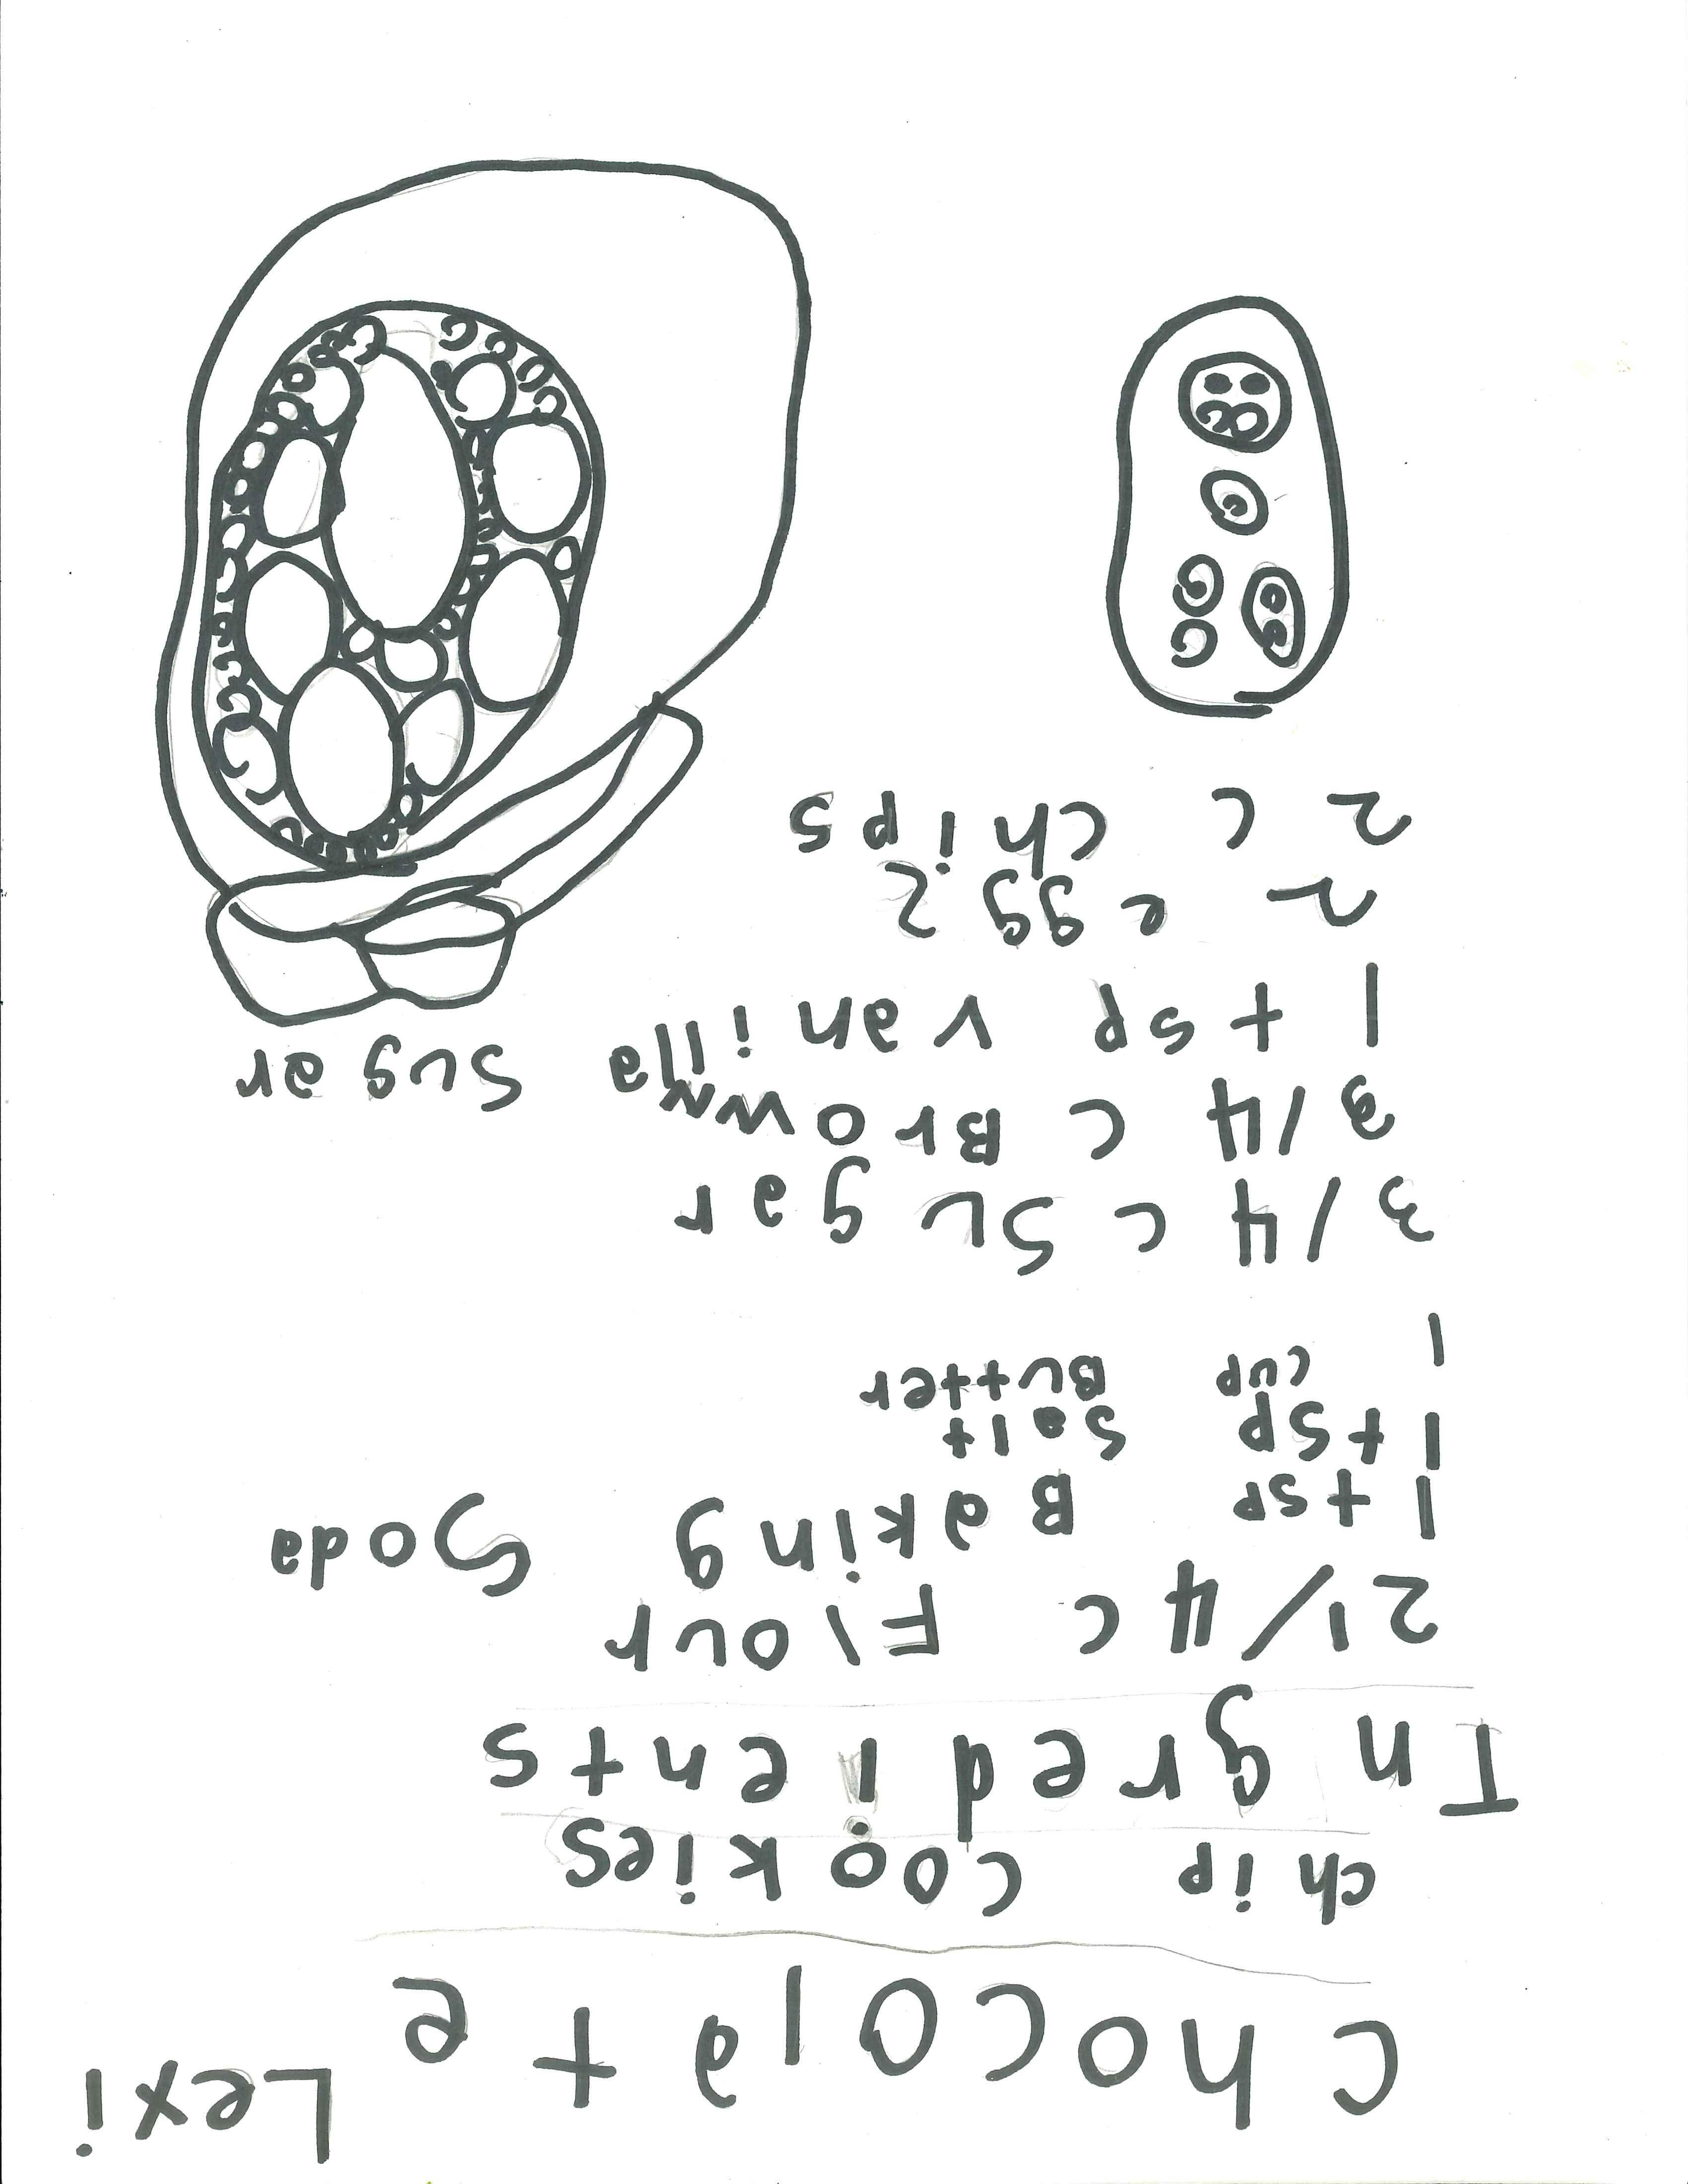 Lexi
Chocolate
chip cookies
Ingredients
2 1/4 c Flour
1 tsp Baking Soda
1 tsp Salt
1 cup Butter
3/4 c Sugar
3/4 c Brown Sugar
1 tsp vanilla
2 eggs
2 c chips